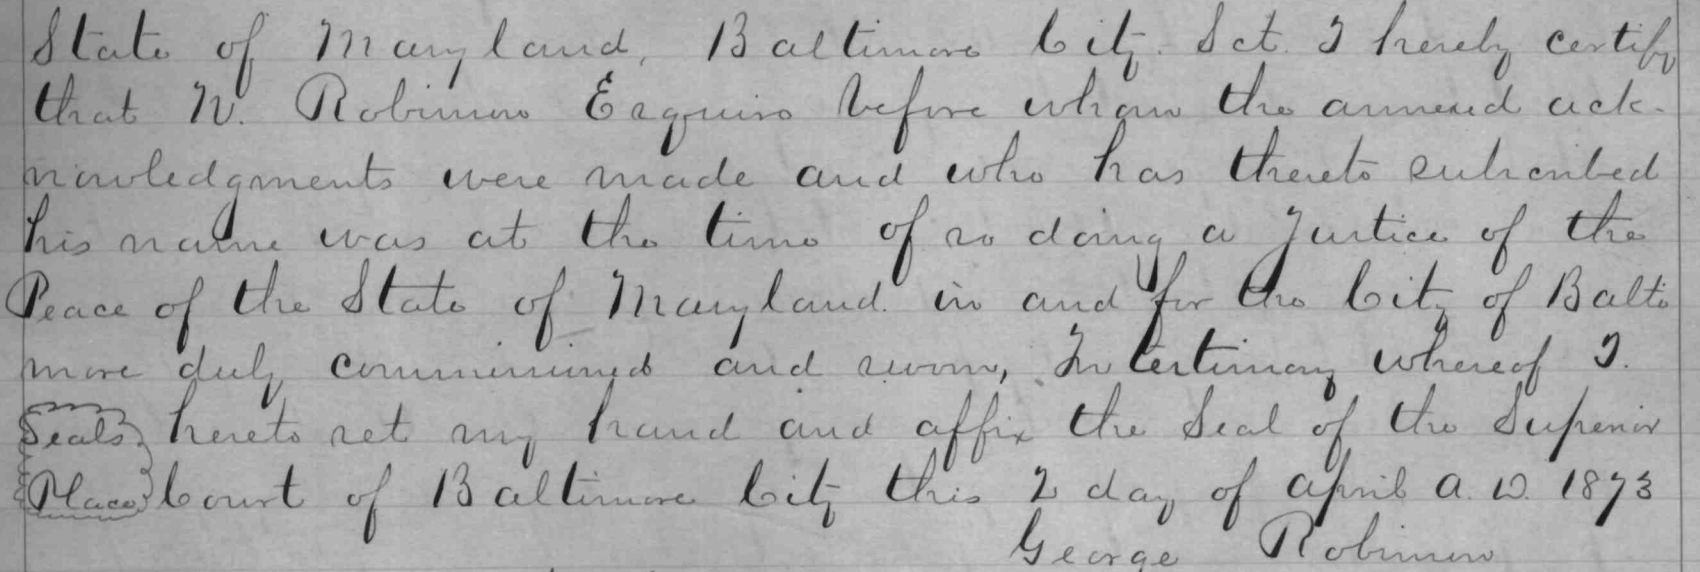 State of Maryland, Baltimore City. Sct. I hereby certify
that N. Robinson Esquire before whom the annexed ack-
nowledgments were made and who has thereto subscribed
his name was at the time of so doing a Justice of the
Peace of the State of Maryland in and for the City of Balti
more duly commissioned and sworn, In testimony whereof I.
Seals hereto set my hand and affix the Seal of the Superior
Place Court of Baltimore City this 2 day of April A.D. 1873
George Robinson